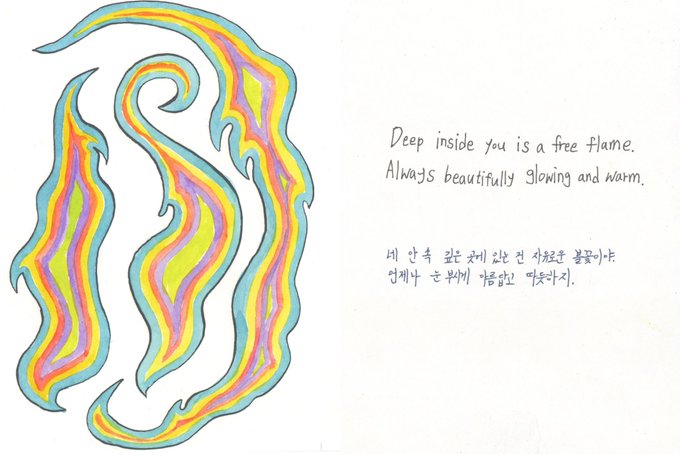 Deep inside you is a free flame.
Always beautifully glowing and warm.
네 안 속 깊은 곳에 있는 건 자유로운 불꽃이야
언제나 눈부시게 아름답고 따뜻하지.